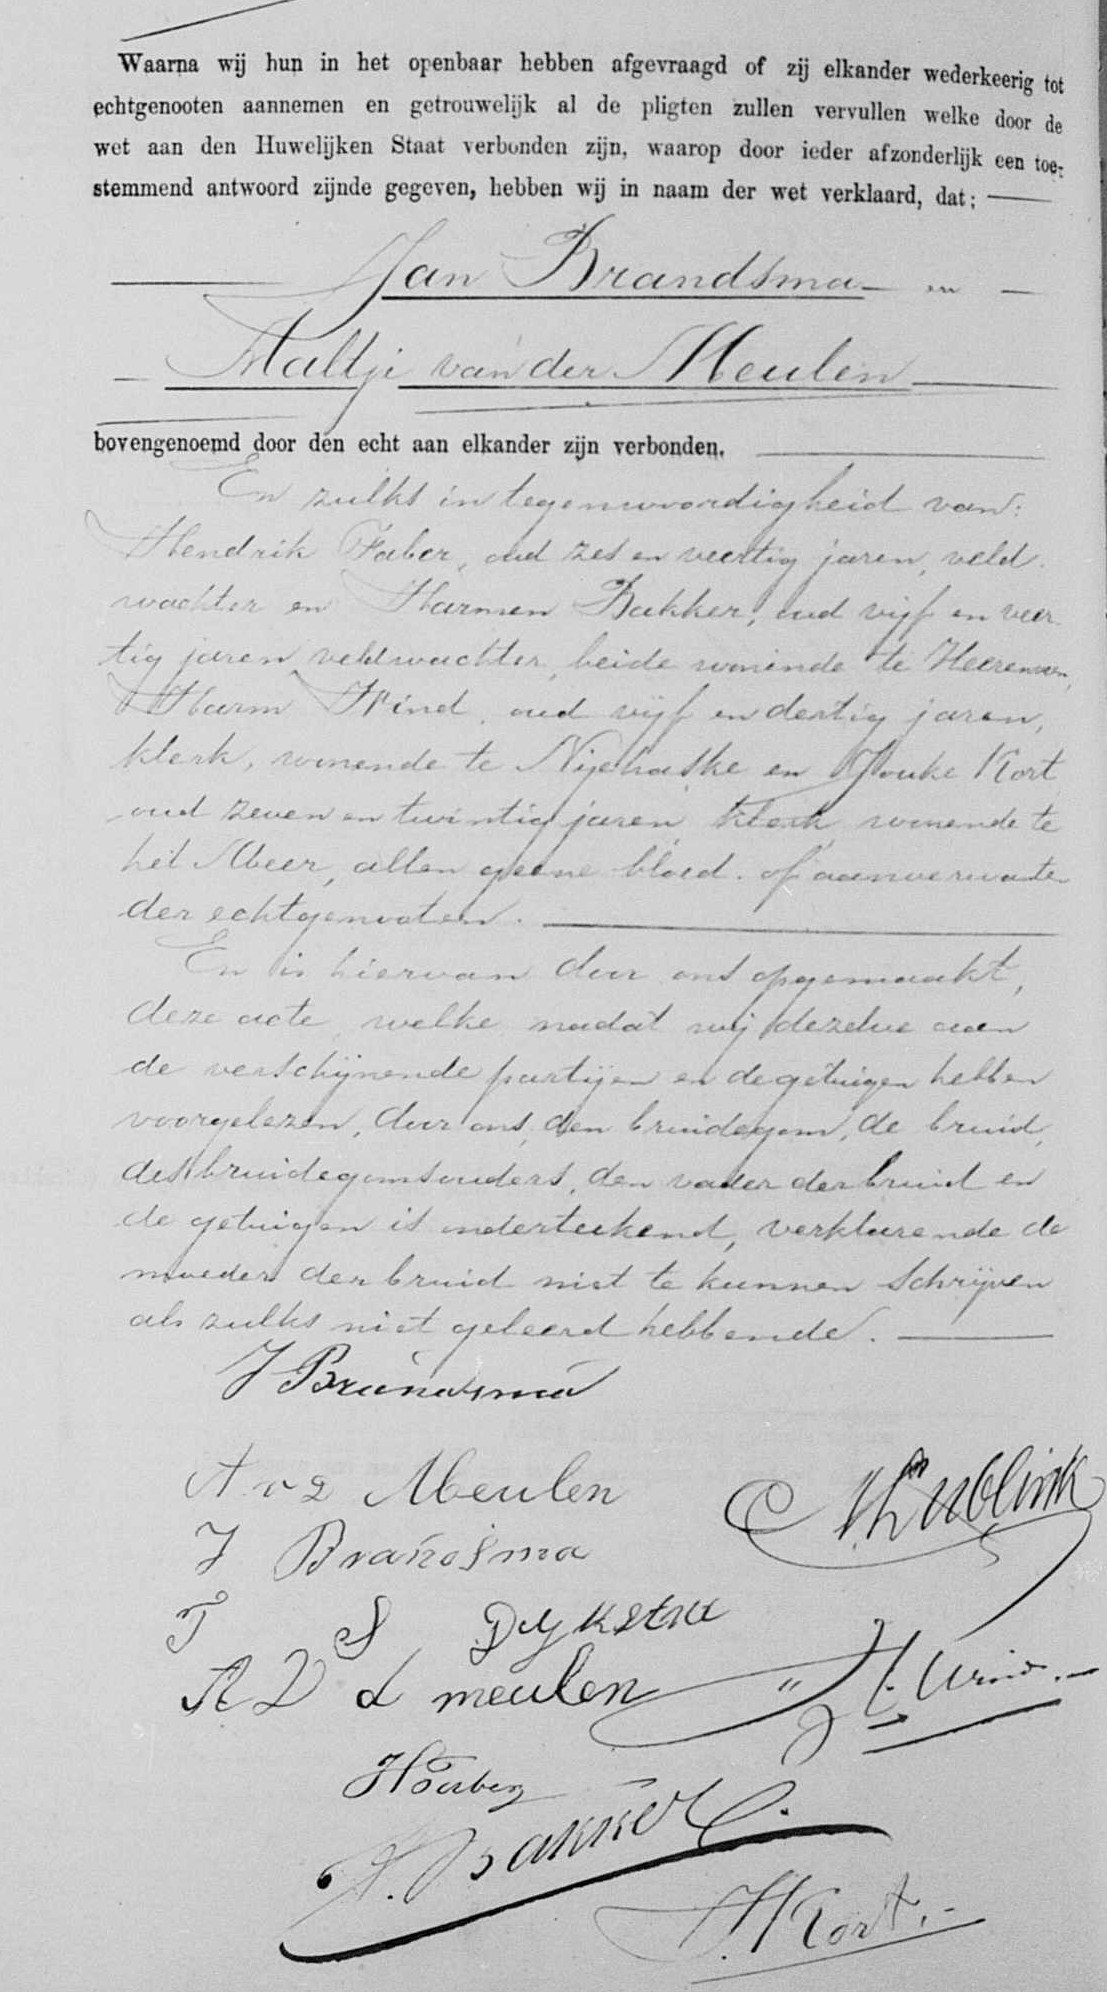 Waarna wij hun in het openbaar hebben afgevraagd of zij elkander wederkeerig tot
echtgenooten aannemen en getrouwelijk al de pligten zullen vervullen welke door de
wet aan den Huwelijken Staat verbonden zijn, waarop door ieder afzonderlijk een toe-
stemmend antwoord zijnde gegeven, hebben wij in naam der wet verklaard, dat:
Jan Brandsma en
Aaltje van der Meulen
bovengenoemd door den echt aan elkander zijn verbonden.
En zulks in tegenwoordigheid van:
Hendrik Faber, oud zes en veertig jaren, veld-
wachter en Harmen Bakker, oud vijf en veer
tig jaren, veldwachter, beide wonende te Heerenveen,
Harm Wind, oud vijf en dertig jaren,
klerk, wonende te Nijehaske en Jouke Kort
oud zeven en twintig jaren, klerk wonende te
het Meer, allen geene bloed- of aanverwanten
der echtgenooten.
En is hiervan door ons opgemaakt,
deze acte, welke, nadat wij dezelve aan
de verschijnende partijen en de getuigen hebben
voorgelezen, door ons, den bruidegom, de bruid,
des bruidegomsouders, den vader der bruid en
de getuigen is onderteekend, verklarende de
moeder der bruid niet te kunnen schrijven
als zulks niet geleerd hebbende.
J Brandsma
A v d Meulen
J Brandsma
T S Dijkstra
A V d meulen H. Wind.
HFaber
H. Bakker
J. Kort.